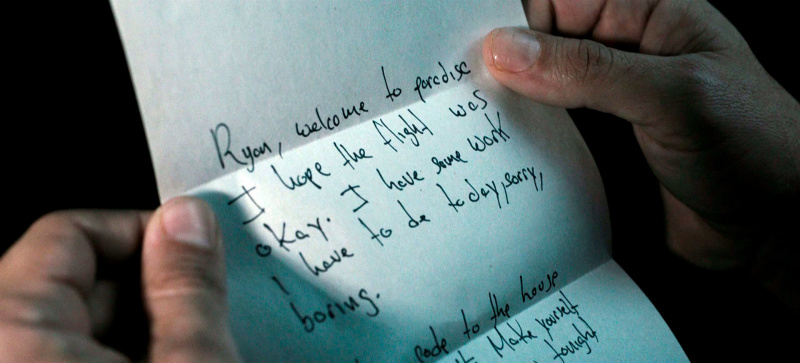 Ryan, welcome to paradise
I hope the flight was
okay. I have some work
I have to do today, sorry,
boring.
code to the house
Make yourself
tonight